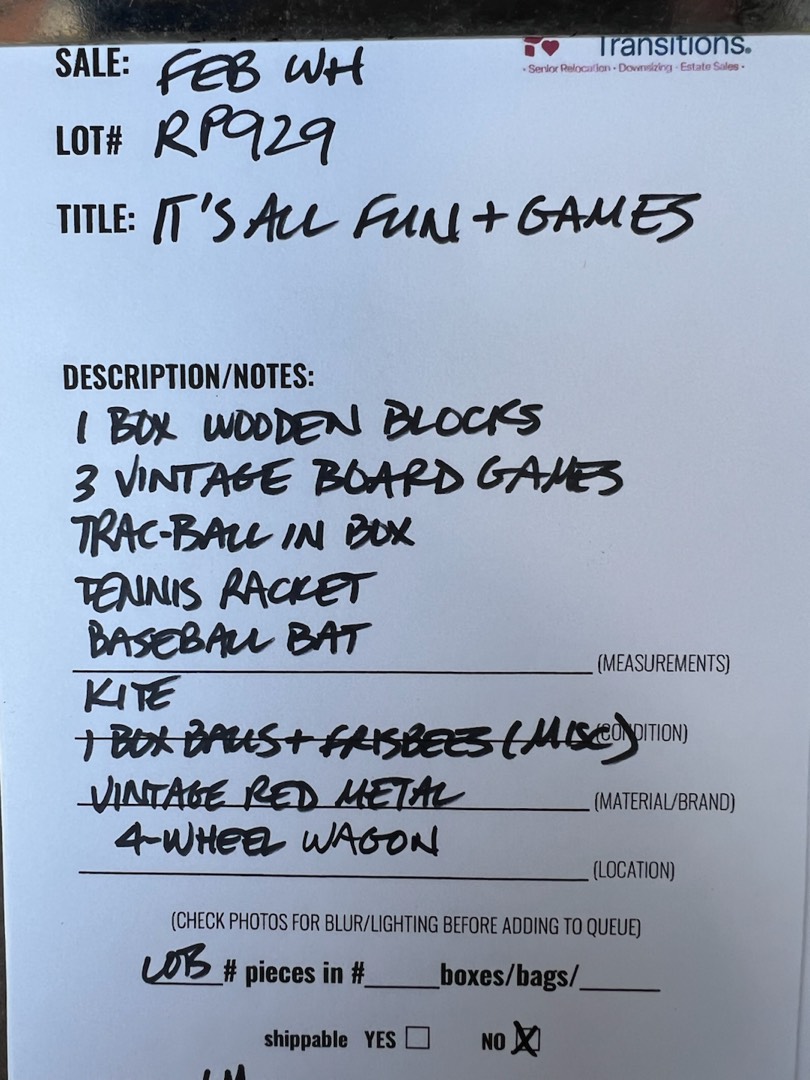 Transitions.
- Senior Relocation - Downsizing - Estate Sales -
SALE: FEB WH
LOT# RP929
TITLE: IT'S ALL FUN + GAMES
DESCRIPTION/NOTES:
1 BOX WOODEN BLOCKS
3 VINTAGE BOARD GAMES
TRAC-BALL IN BOX
TENNIS RACKET
BASEBALL BAT
(MEASUREMENTS)
KITE
1 BOX BALLS + FRISBEES (MISC) (CONDITION)
VINTAGE RED METAL (MATERIAL/BRAND)
4-WHEEL WAGON
(LOCATION)
(CHECK PHOTOS FOR BLUR/LIGHTING BEFORE ADDING TO QUEUE)
LOB # pieces in #____boxes/bags/____
shippable YES ☐ NO ☒